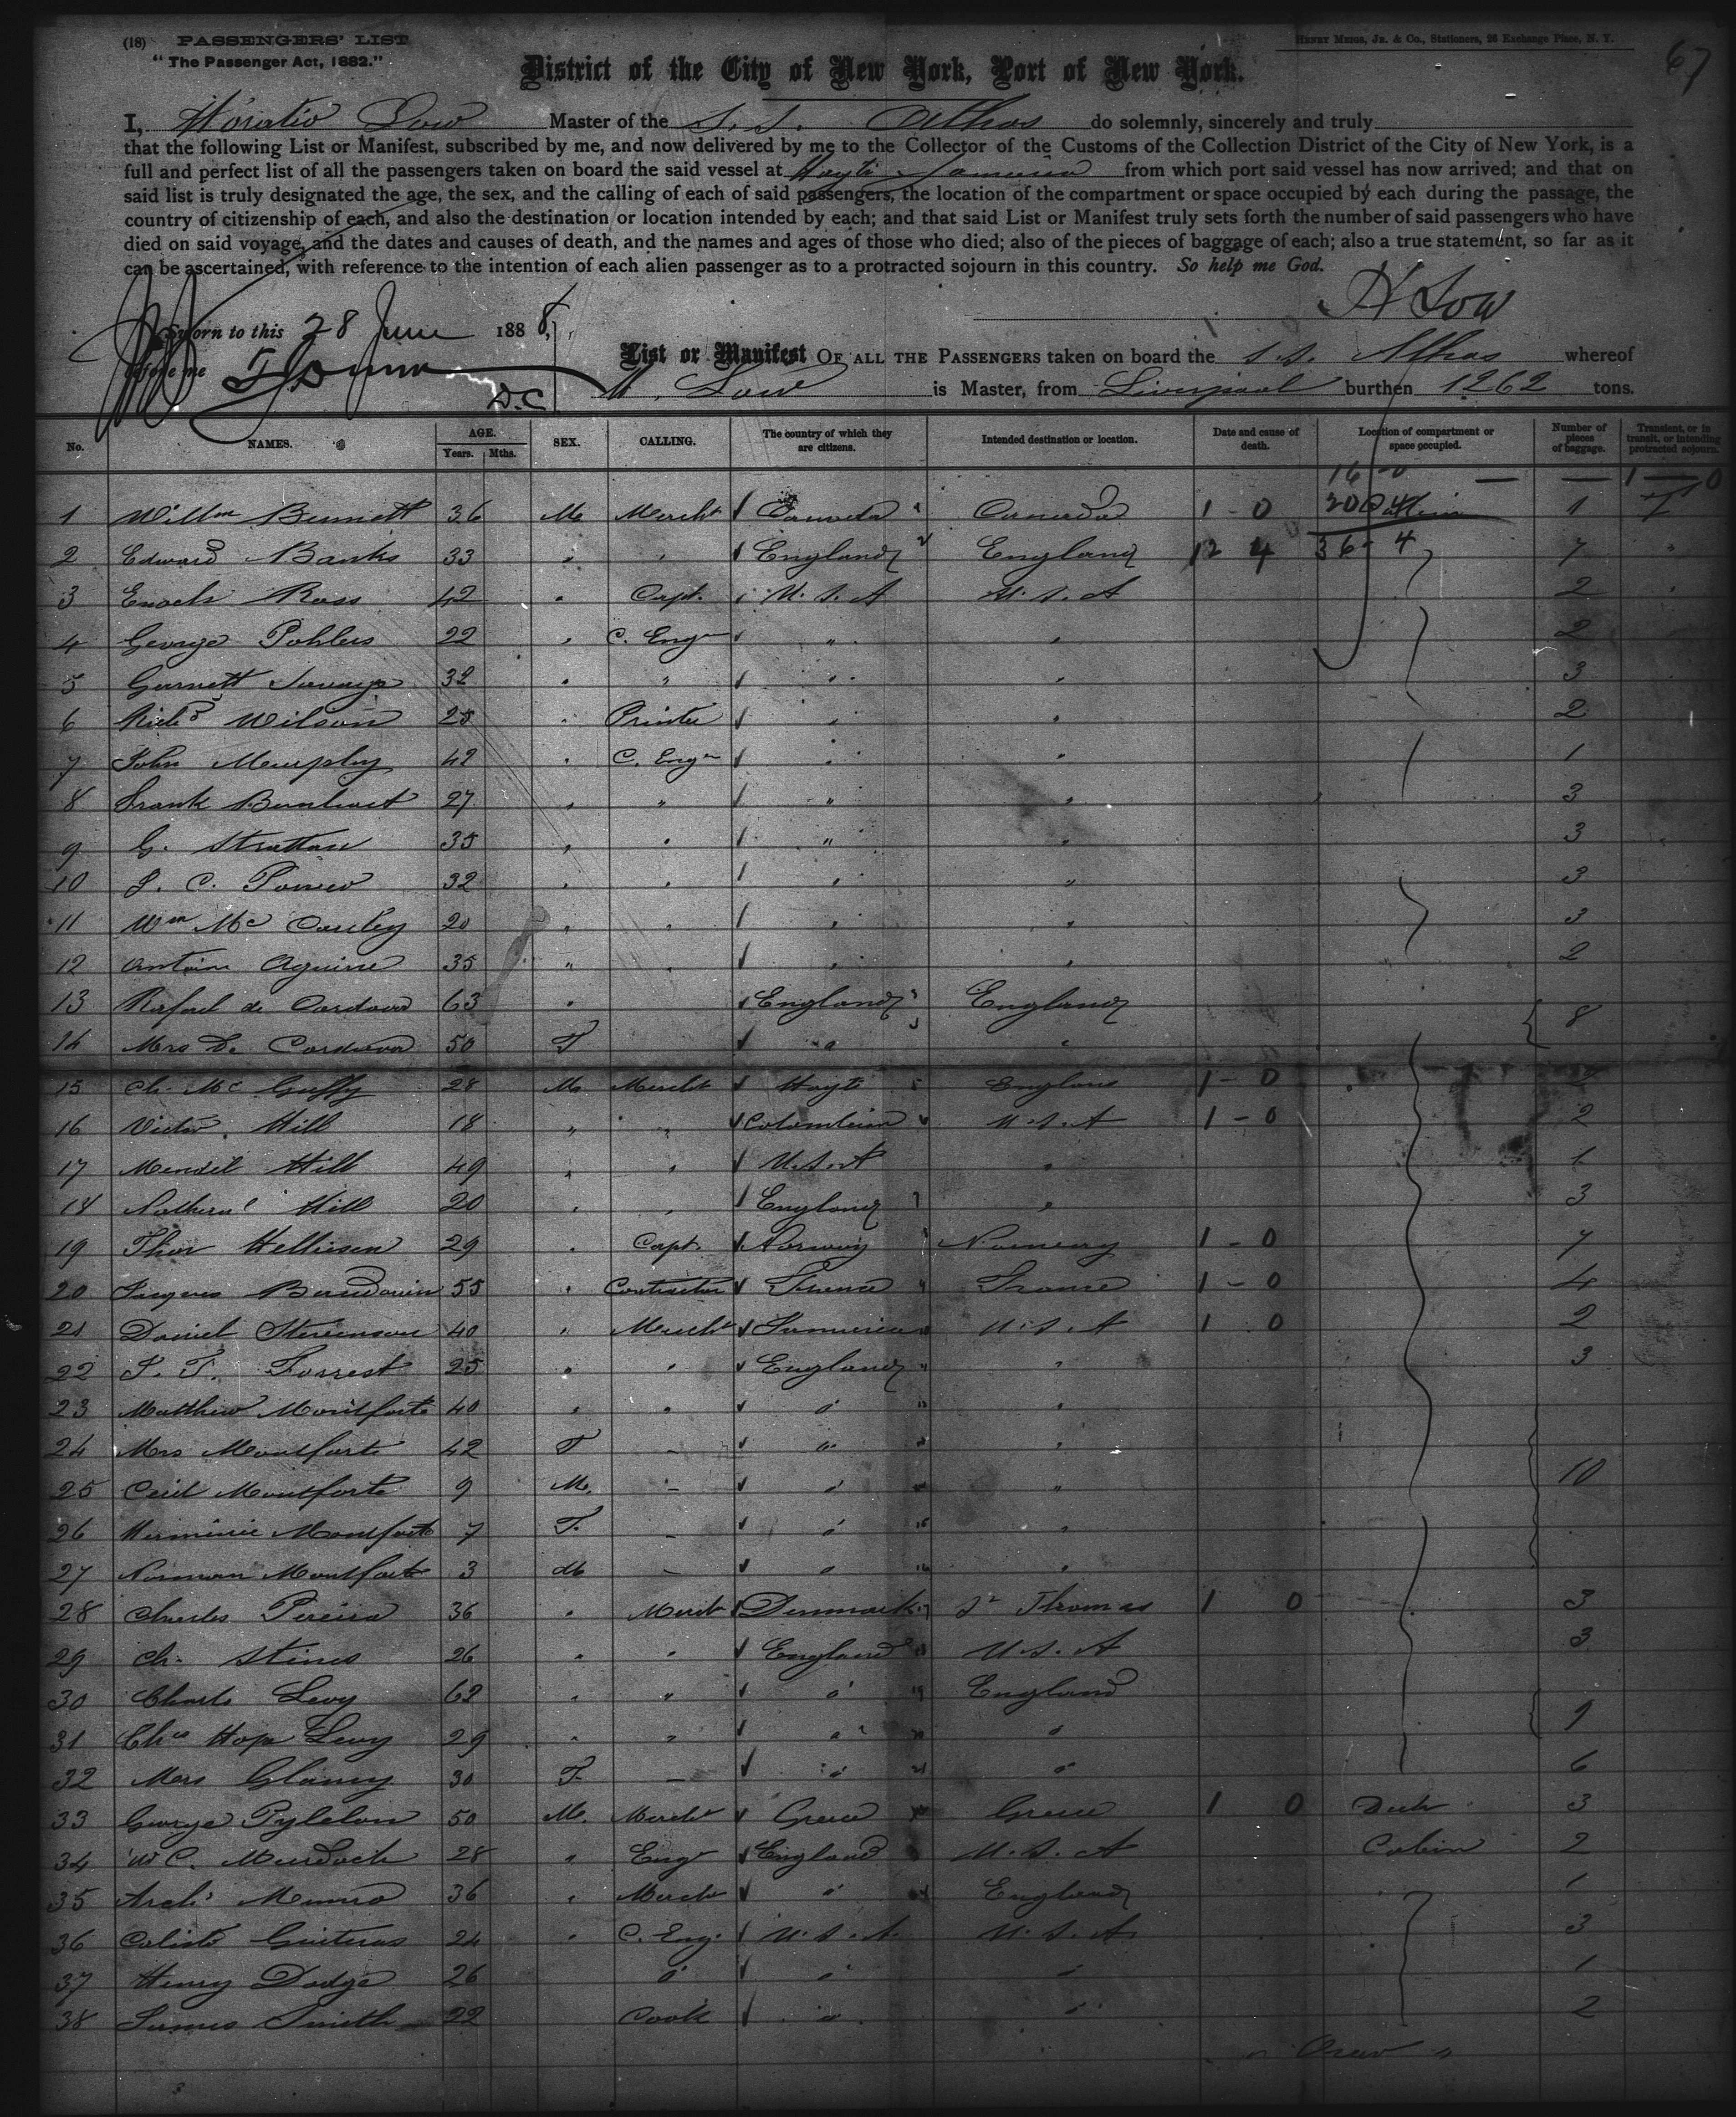 (18) PASSENGERS' LIST
HENRY MEIGS, JR. & CO., Stationers, 26 Exchange Place, N. Y.
67
"The Passenger Act, 1882."
District of the City of New York, Port of New York.
I, Horatio Low Master of the S.S. Athos do solemnly, sincerely and truly
that the following List or Manifest, subscribed by me, and now delivered by me to the Collector of the Customs of the Collection District of the City of New York, is a
full and perfect list of all the passengers taken on board the said vessel at Hayti Jamaica from which port said vessel has now arrived; and that on
said list is truly designated the age, the sex, and the calling of each of said passengers, the location of the compartment or space occupied by each during the passage, the
country of citizenship of each, and also the destination or location intended by each; and that said List or Manifest truly sets forth the number of said passengers who have
died on said voyage, and the dates and causes of death, and the names and ages of those who died; also of the pieces of baggage of each; also a true statement, so far as it
can be ascertained, with reference to the intention of each alien passenger as to a protracted sojourn in this country. So help me God.
H Low
Sworn to this 28 June 1888,
before me
D.C
List or Manifest OF ALL THE PASSENGERS taken on board the S.S. Athos whereof
H. Low is Master, from Liverpool burthen 1262 tons.
No. NAMES. AGE. Years. Mths. SEX. CALLING. The country of which they are citizens. Intended destination or location. Date and cause of death. Location of compartment or space occupied. Number of pieces of baggage. Transient, or in transit, or intending protracted sojourn.
16 - 0 1 - 0
1 Willm Bennett 36 M Mercht Canada Canada 1 0 20 4 1 T
2 Edward Banks 33 " " England England 12 4 36 - 4 7 "
3 Enoch Ross 42 " Capt. U.S.A U.S.A 2
4 George Pohlers 22 " C. Engr " " 2
5 Garnett Savage 32 " " " " 3
6 Richd Wilson 25 " Printer " " 2
7 John Murphy 42 " C. Engr " " 1
8 Frank 27 " " " " 3
9 G. Strattan 35 " " " " 3
10 J. C. 32 " " " " 3
11 Wm Mc Carley 20 " " " " 3
12 Antoine Aguirre 35 " " " " 2
13 Rafael de Cordova 63 " England England 8
14 Mrs De Cordova 50 F " "
15 Ch. Mc Guffy 28 M Mercht Hayti England 1 - 0 2
16 Victor Hill 18 " " Colombian U.S.A 1 - 0 2
17 Hill 49 " " U.S.A " 1
18 Nathan'l Hill 20 " " England " 3
19 Thor Helliesen 29 " Capt. Norway Norway 1 - 0 7
20 Jacques Baudouin 55 " Contractor France France 1 - 0 4
21 Daniel Stevenson 40 " Mercht Jamaica U.S.A 1 0 2
22 J. T. Forrest 25 " " England " 3
23 Matthew Montforte 40 " " " "
24 Mrs Montforte 42 F - " "
25 Cecil Montforte 9 M. - " " 10
26 Herminie Montforte 7 F. - " "
27 Norman Montforte 3 M - " "
28 Charles Pereira 36 " Mercht Denmark St Thomas 1 0 3
29 Ch. Stines 26 " " England U.S.A 3
30 Charls Levy 62 " " " England
31 Chas Hope Levy 29 " " " " 9
32 Mrs Glamy 30 F. - " " 6
33 George Pylelon 50 M. Mercht Greece Greece 1 0 Deck 3
34 W C. Murdoch 28 " Engr England U.S.A Cabin 2
35 Archd Munro 36 " Mercht " England 1
36 Calisto Guiteras 24 " C. Eng. U.S.A. U.S.A. 3
37 Henry Dodge 26 " " " 1
38 James Smith 22 Cook " " 2